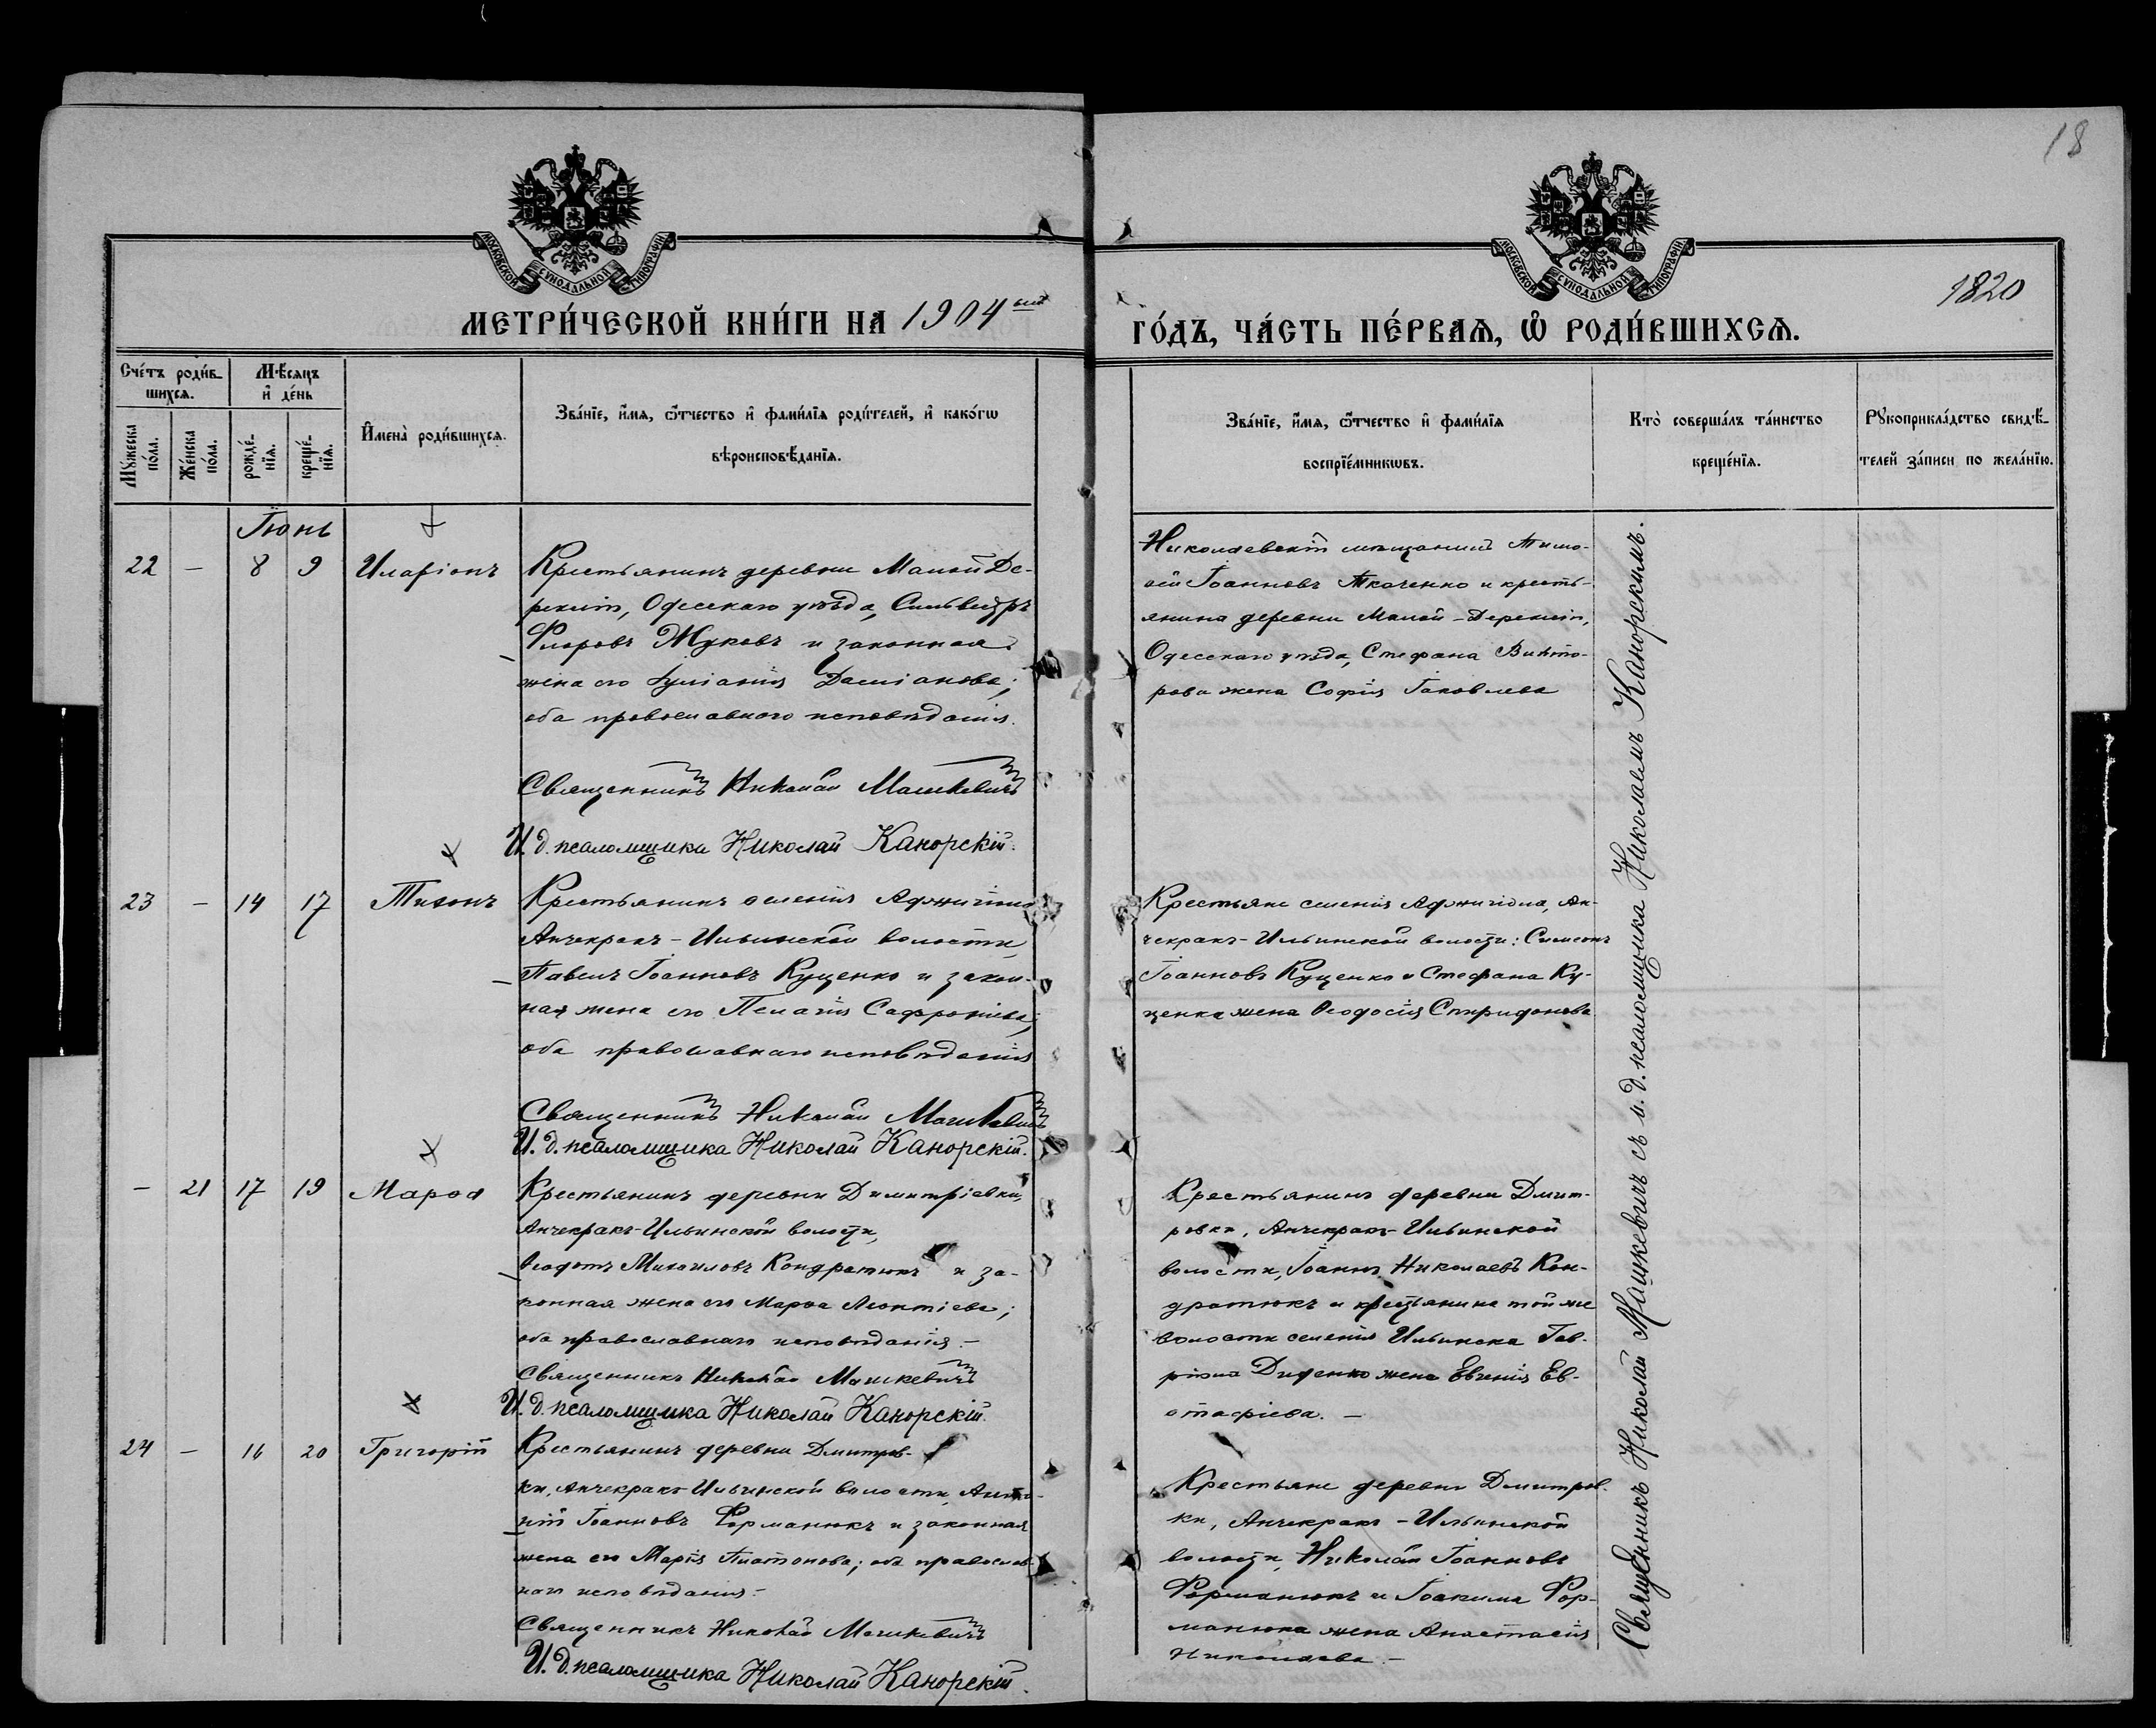 18
1820
МОСКОВСКОЙ СУНОДАЛЬНОЙ ТИПОГРАФІИ
МОСКОВСКОЙ СУНОДАЛЬНОЙ ТИПОГРАФІИ
МЕТРИ́ЧЕСКОЙ КНИ́ГИ НА 1904 ый
ГО́ДЪ, ЧА́СТЬ ПЕ́РВАЯ, Ѡ РОДИ́ВШИХСЯ.
Сче́тъ роди́в-
шихся.
Мѣ́сяцъ
и҆ де́нь
Му́жеска
по́ла.
Же́нска
по́ла.
рожде́-
нїя.
креще́-
нїя.
И҆мена̀ роди́вшихся.
Зва́нїе, и҆́мя, ѻ҆́тчество и҆ фами́лїя роди́телей, и҆ како́гѡ
вѣроисповѣ́данїя.
Зва́нїе, и҆́мя, ѻ҆́тчество и҆ фами́лїя
воспрїе́мникѡвъ.
Кто̀ соверша́лъ та́инство
креще́нїя.
Рукоприкла́дство свидѣ́-
телей за́писи по жела́нїю.
Іюнь
22 — 8 9 Иларіонъ
Крестьянинъ деревни Малой Де-
рекліи, Одесскаго уѣзда, Сильвестръ
Флоровъ Жуковъ и законная
жена его Іуліанія Даміанова;
оба православнаго исповѣданія.
Священникъ Николай Машкевичъ
И. д. псаломщика Николай Канорскій.
Николаевскій мѣщанинъ Тимо-
ѳей Іоанновъ Ткаченко и кресть-
янина деревни Малой-Дерекліи,
Одесскаго уѣзда, Стефана Викто-
рова жена Софія Іаковлева
23 — 14 17 Тихонъ
Крестьянинъ селенія Аджигіола
Анчекракъ-Ильинской волости,
Павелъ Іоанновъ Куценко и закон-
ная жена его Пелагія Сафроніева;
оба православнаго исповѣданія
Священникъ Николай Машкевичъ
И. д. псаломщика Николай Канорскій.
Крестьяне селенія Аджигіола, Ан-
чекракъ-Ильинской волости: Симеонъ
Іоанновъ Куценко и Стефана Ку-
ценка жена Ѳеодосія Спиридонова
— 21 17 19 Марѳа
Крестьянинъ деревни Димитріевки,
Анчекракъ-Ильинской волости,
Ѳеодотъ Михаиловъ Кондратюкъ и за-
конная жена его Марѳа Леонтіева;
оба православнаго исповѣданія.—
Священникъ Николай Машкевичъ
И. д. псаломщика Николай Канорскій.
Крестьянинъ деревни Дмит-
ровки, Анчекракъ-Ильинской
волости, Іоаннъ Николаевъ Кон-
дратюкъ и крестьянина той же
волости селенія Ильинска Гав-
ріила Диденко жена Евгенія Ев-
стафіева.—
24 — 16 20 Григорій
Крестьянинъ деревни Дмитров-
ки, Анчекракъ-Ильинской волости, Анто-
ній Іоанновъ Форманюкъ и законная
жена его Марія Платонова; оба православ-
наго исповѣданія.—
Священникъ Николай Машкевичъ
И. д. псаломщика Николай Канорскій.
Крестьяне деревни Дмитров-
ки, Анчекракъ-Ильинской
волости, Николай Іоанновъ
Форманюкъ и Іоакима Фор-
манюка жена Анастасія
Николаева.—
Священникъ Николай Машкевичъ съ и. д. псаломщика Николаемъ Канорскимъ.